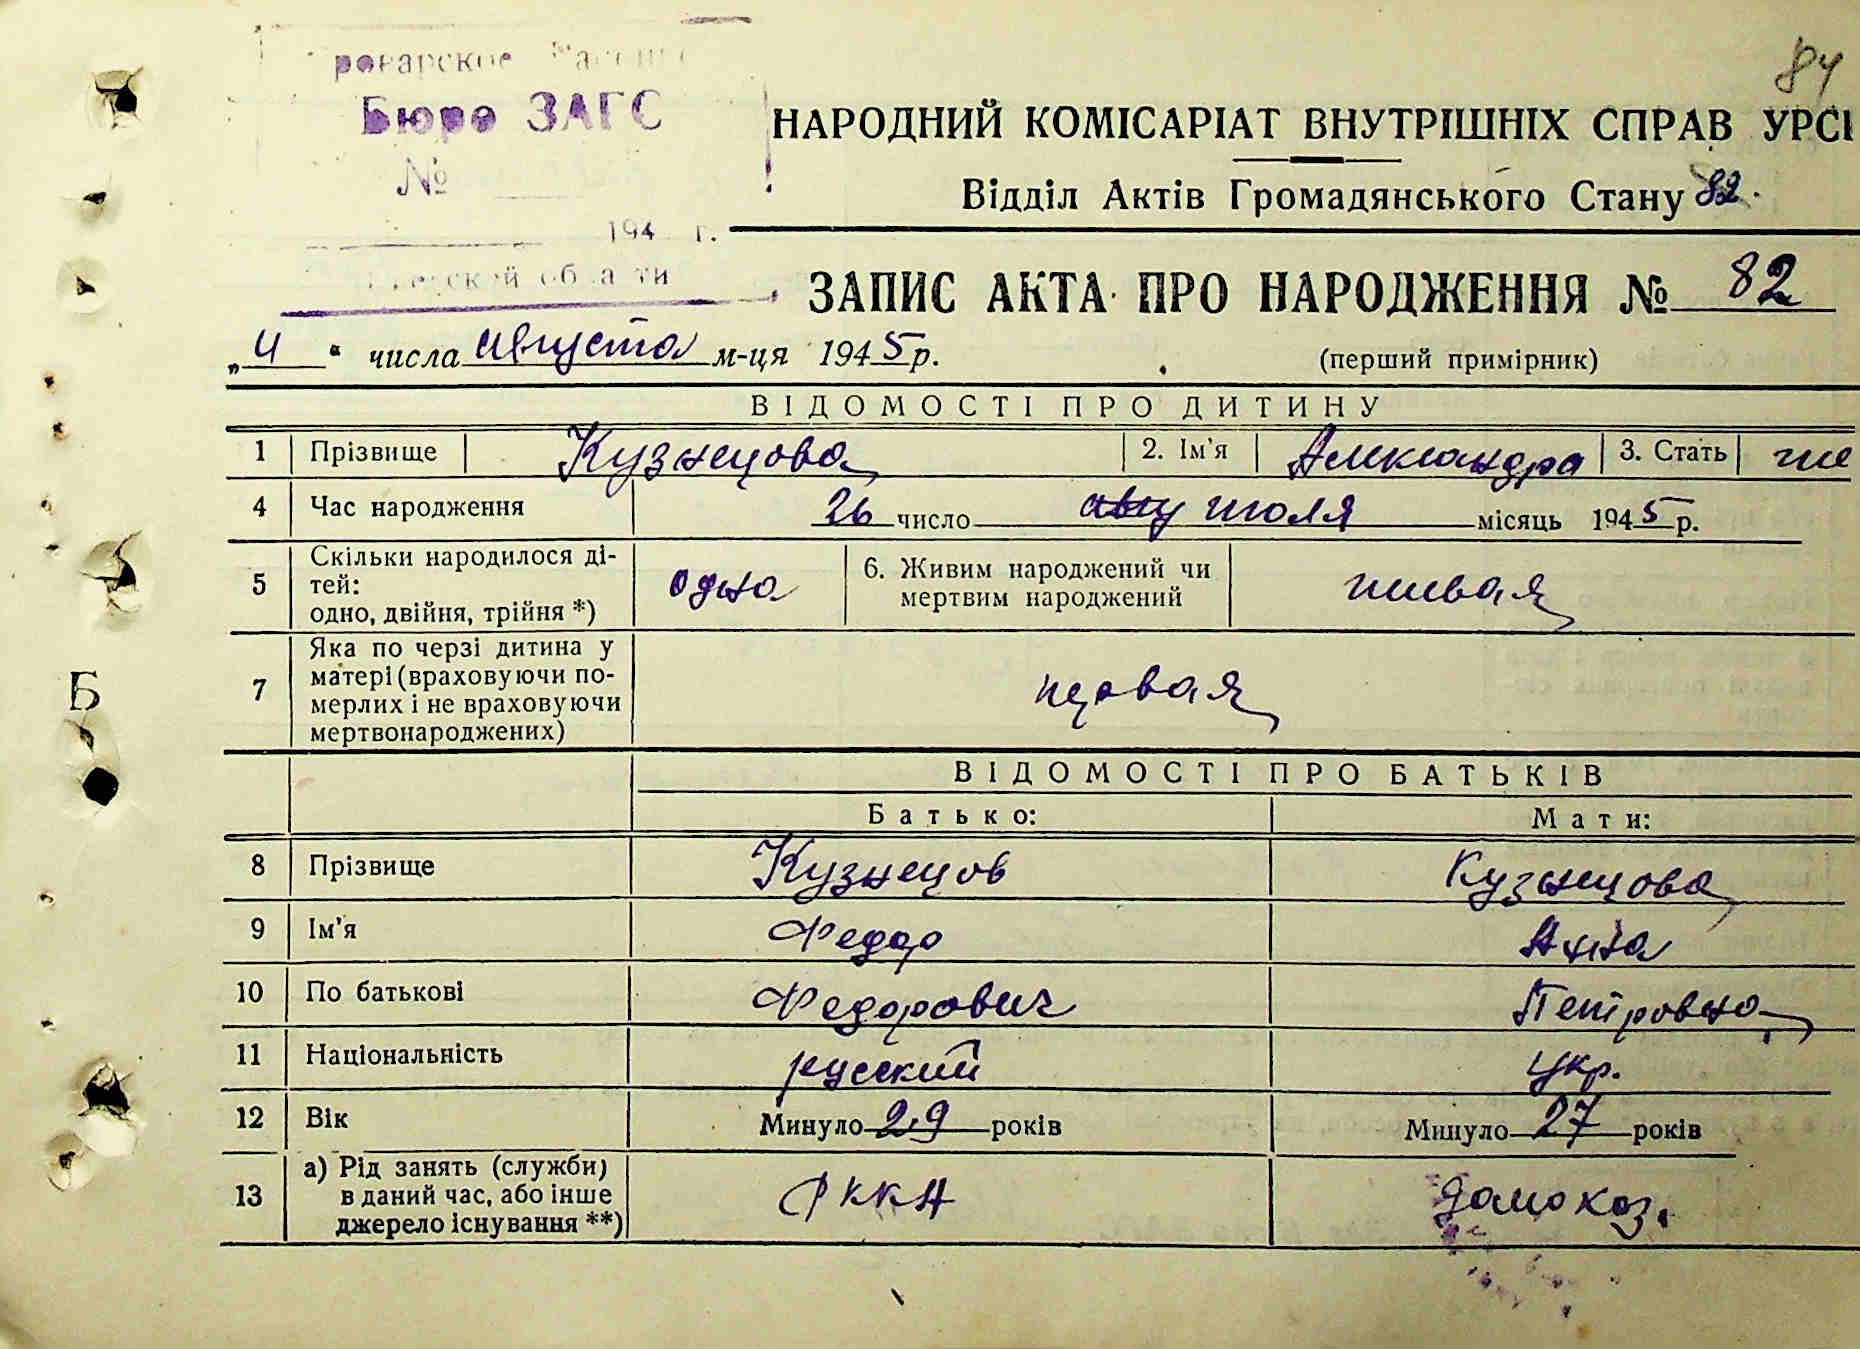 84
Бюро ЗАГС
№
194 г.
НАРОДНИЙ КОМІСАРІАТ ВНУТРІШНІХ СПРАВ УРСР
Відділ Актів Громадянського Стану 82.
ЗАПИС АКТА ПРО НАРОДЖЕННЯ № 82
„4“ числа августа м-ця 1945 р. (перший примірник)
ВІДОМОСТІ ПРО ДИТИНУ
1 Прізвище Кузнецова 2. Ім'я Александра 3. Стать же
4 Час народження 26 число июля місяць 1945 р.
5 Скільки народилося ді-
тей:
одно, двійня, трійня *) одна 6. Живим народжений чи
мертвим народжений живая
7 Яка по черзі дитина у
матері (враховуючи по-
мерлих і не враховуючи
мертвонароджених) первая
Б
ВІДОМОСТІ ПРО БАТЬКІВ
Батько: Мати:
8 Прізвище Кузнецов Кузнецова
9 Ім'я Федор Анна
10 По батькові Федорович Петровна
11 Національність русский укр.
12 Вік Минуло 29 років Минуло 27 років
13 а) Рід занять (служби)
в даний час, або інше
джерело існування **) РККА домохоз.